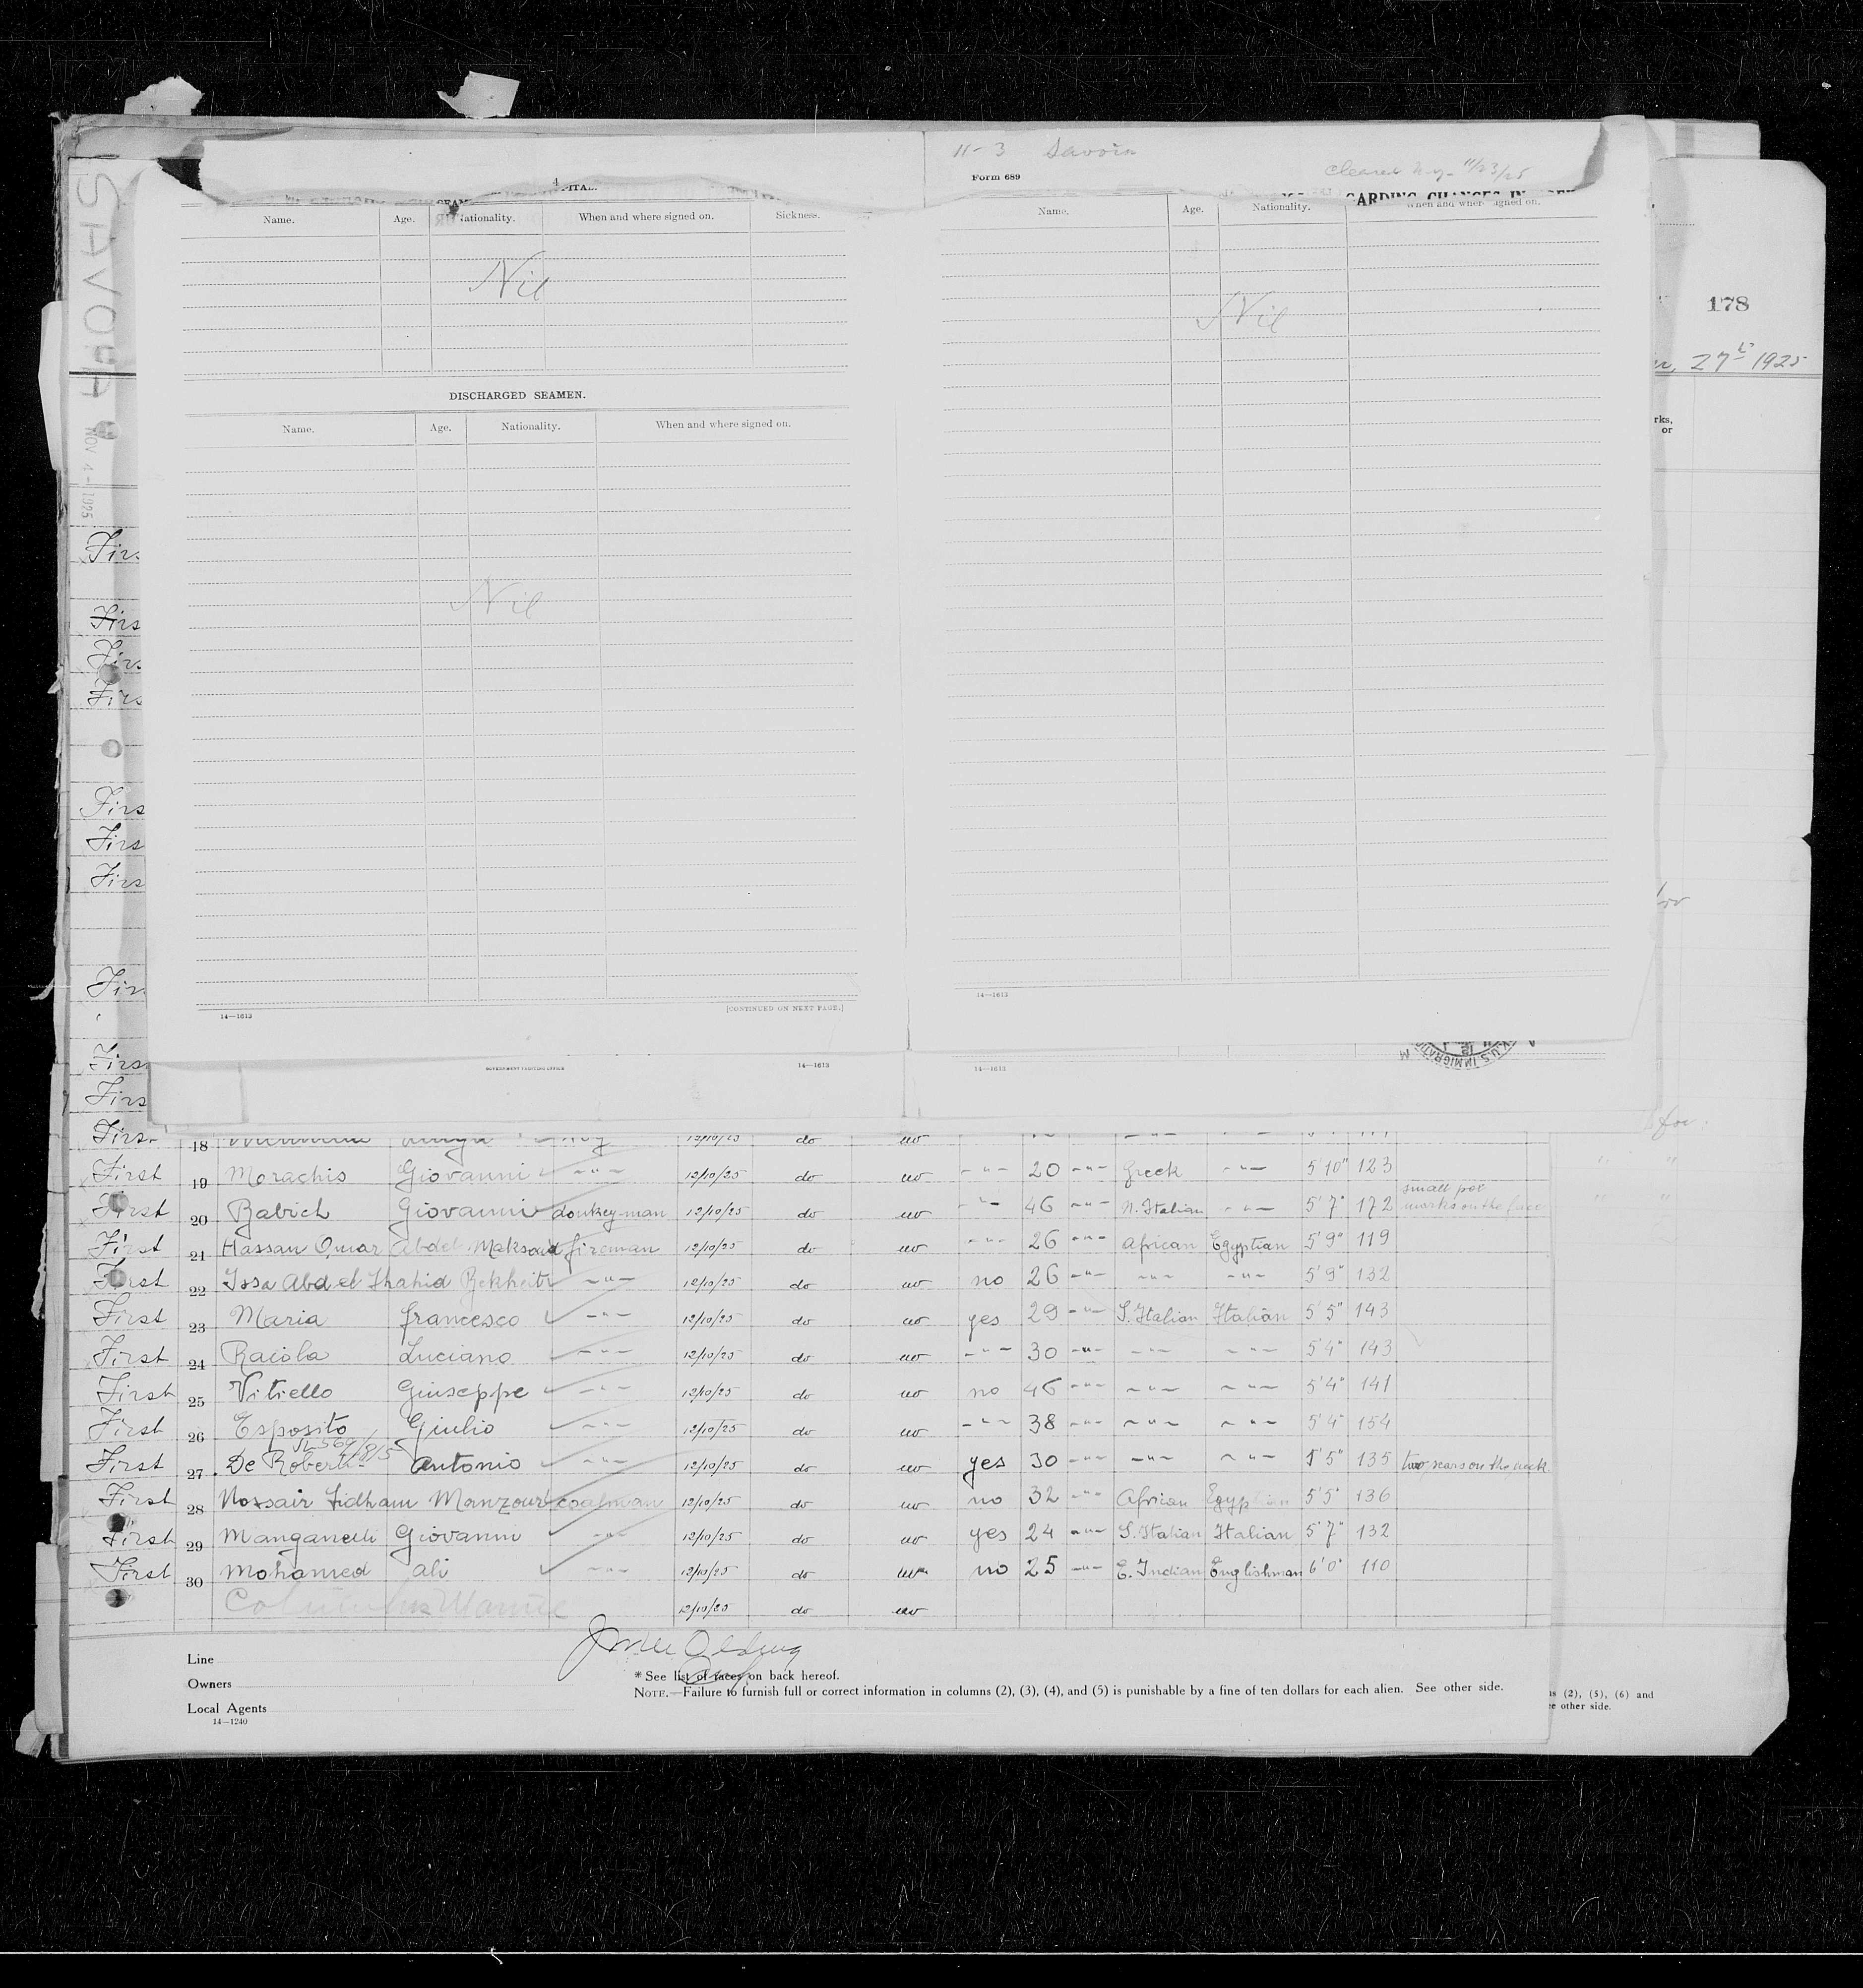 11-3 Savoia
Form 689
Cleared N.Y. 11/23/25
4
PITAL.
Name. Age. Nationality. When and where signed on. Sickness.
Nil
DISCHARGED SEAMEN.
Name. Age. Nationality. When and where signed on.
Nil
14—1613 [CONTINUED ON NEXT PAGE.]
GOVERNMENT PRINTING OFFICE 14—1613
ARDING CHANGES IN
Name. Age. Nationality. When and where signed on.
Nil
14—1613
14—1613
U.S. IMMIGRATIO
178
27th 1925
rks,
or
SAVOIA
NOV 4 - 1925
Firs
Firs
Firs
Firs
Firs
Firs
Firs
Fir
Firs
Firs
Firs 18 12/10/25 do
First 19 Morachis Giovanni -"- 12/10/25 do -"- 20 -"- Greek -"- 5'10" 123
First 20 Babich Giovanni donkey-man 12/10/25 do -"- 46 -"- N. Italian -"- 5'7" 172 small pox marks on the face
First 21 Hassan Omar Abdel Maksoud fireman 12/10/25 do -"- 26 -"- African Egyptian 5'9" 119
First 22 Issa Abd el Shahid Bekheit -"- 12/10/25 do no 26 -"- -"- -"- 5'9" 132
First 23 Maria francesco -"- 12/10/25 do yes 29 -"- S. Italian Italian 5'5" 143
First 24 Raiola Luciano -"- 12/10/25 do -"- 30 -"- -"- -"- 5'4" 143
First 25 Vitiello Giuseppe -"- 12/10/25 do no 46 -"- -"- -"- 5'4" 141
First 26 Esposito Giulio -"- 12/10/25 do -"- 38 -"- -"- -"- 5'4" 154
First 27 De Robertis Antonio -"- 12/10/25 do yes 30 -"- -"- -"- 5'5" 135 two scars on the neck
First 28 Nossair Sidham Manzour coalman 12/10/25 do no 32 -"- African Egyptian 5'5" 136
First 29 Manganelli Giovanni -"- 12/10/25 do yes 24 -"- S. Italian Italian 5'7" 132
First 30 Mohamed Ali -"- 12/10/25 do no 25 -"- E. Indian Englishman 6'0" 110
12/10/25 do
Line
Owners
Local Agents
14—1240
*See list of races on back hereof.
NOTE.—Failure to furnish full or correct information in columns (2), (3), (4), and (5) is punishable by a fine of ten dollars for each alien. See other side.
s (2), (5), (6) and
e other side.